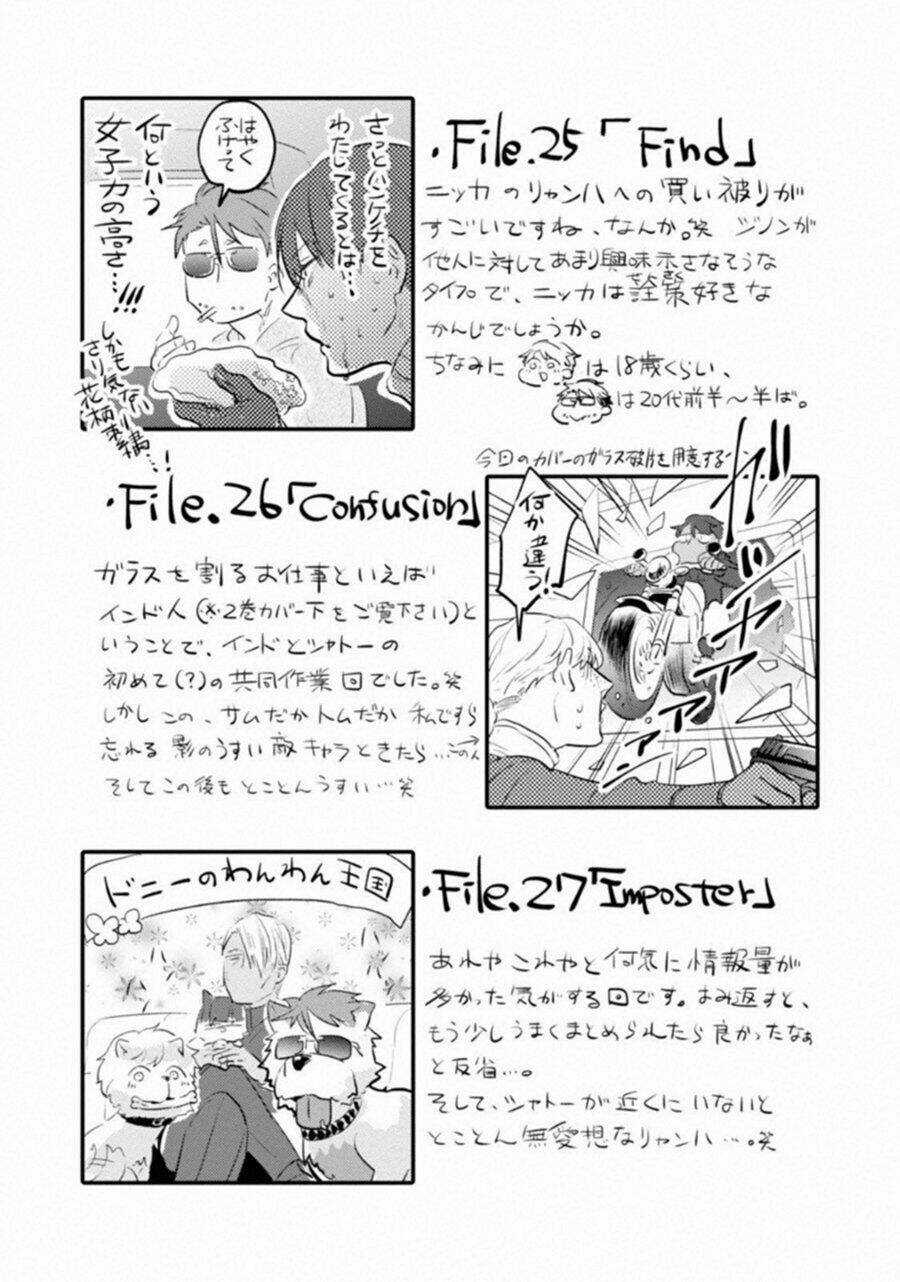 ・File.25「Find」
ニッカのリャンハへの買い被りが
すごいですね、なんか。笑 ジノンが
他人に対してあまり興味示さなそうな
タイプで、ニッカは詮索好きな
かんじでしょうか。
ちなみに は18歳くらい、
は20代前半〜半ば。
さっとハンケチを
わたしてくるとは…
はやく
ふけって
何という
女子力の高さ…!!!
しかも気ない
さり
花柄刺繍…!
・File.26「Confusion」
ガラスを割るお仕事といえば
インド人(※2巻カバー下をご覧下さい)と
いうことで、インドとシャトーの
初めて(?)の共同作業回でした。笑
しかしこの、サムだかトムだか私ですら
忘れる影のうすい敵キャラときたら…この人→
そしてこの後もとことんうすい…笑
今回のカバーのガラス破片を用意する
何か違う!
ガシャアアァァァ
・File.27「Imposter」
あれやこれやと何気に情報量が
多かった気がする回です。よみ返すと、
もう少しうまくまとめられたら良かったなぁ
と反省…。
そして、シャトーが近くにいないと
とことん無愛想なリャンハ…。笑
ドニーのわんわん王国